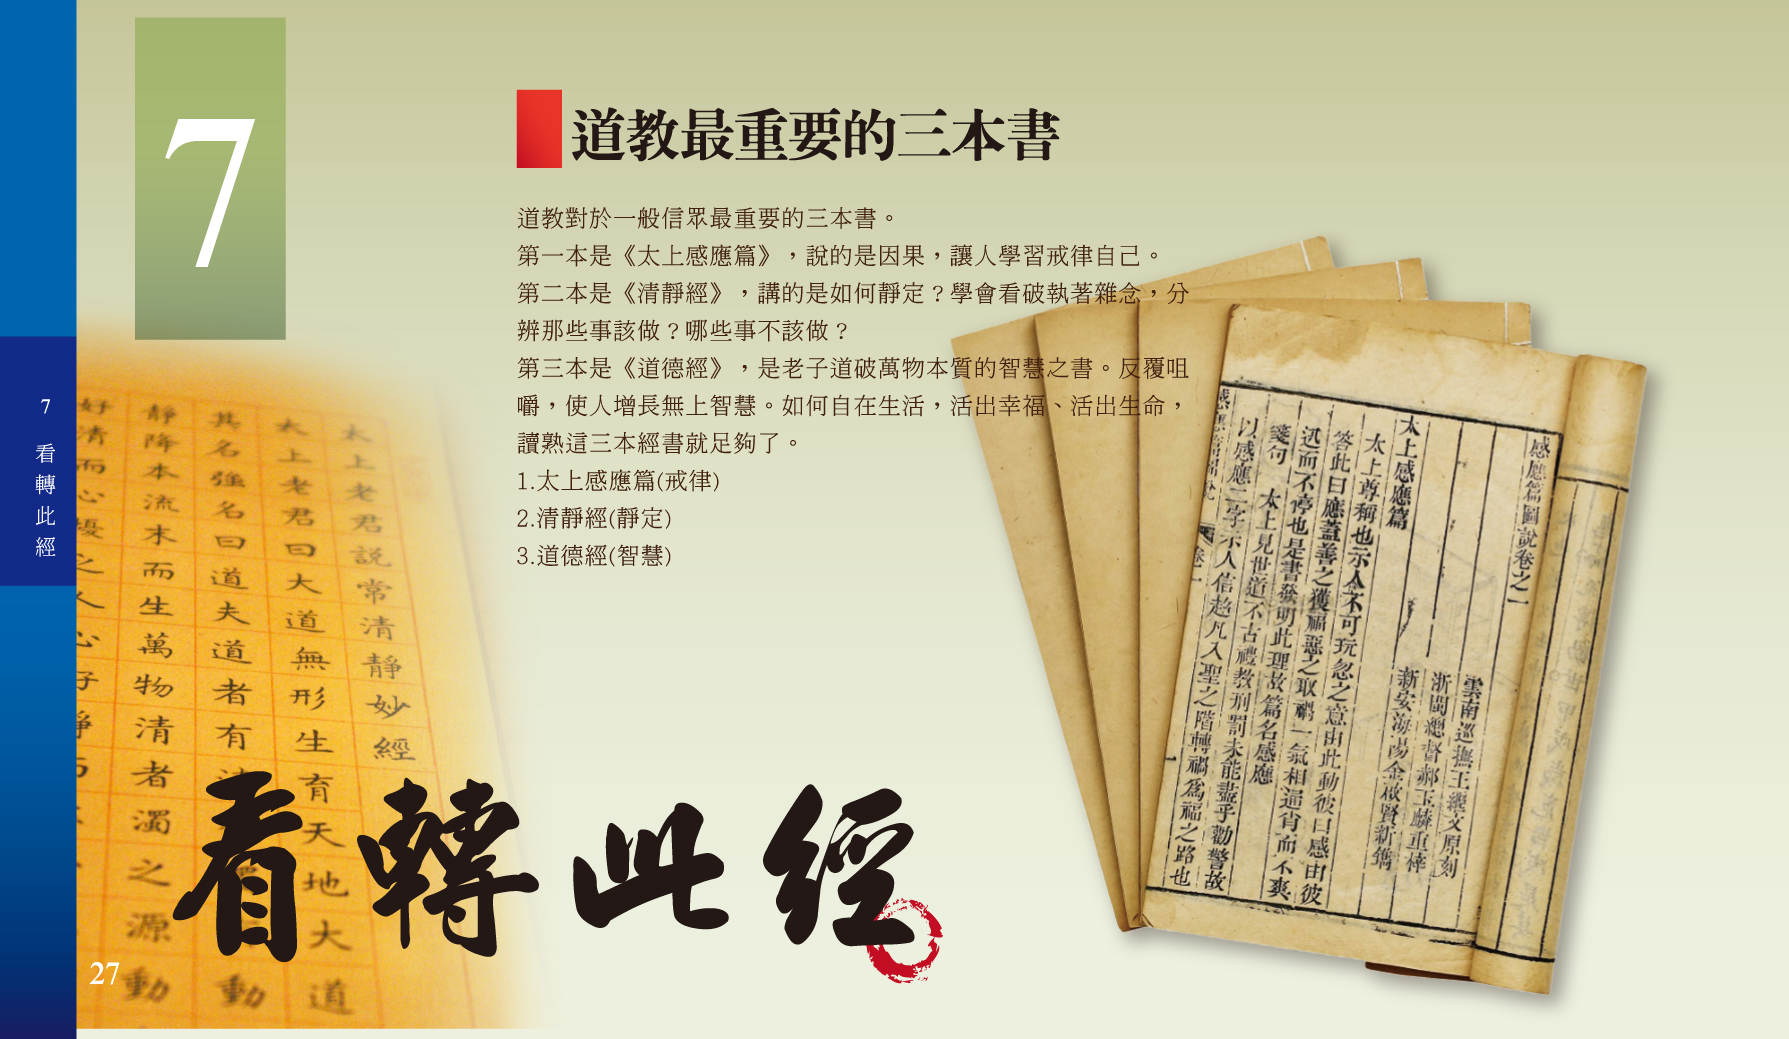 7
道教最重要的三本書
道教對於一般信眾最重要的三本書。
第一本是《太上感應篇》，說的是因果，讓人學習戒律自己。
第二本是《清靜經》，講的是如何靜定？學會看破執著雜念，分
辨那些事該做？哪些事不該做？
第三本是《道德經》，是老子道破萬物本質的智慧之書。反覆咀
嚼，使人增長無上智慧。如何自在生活，活出幸福、活出生命，
讀熟這三本經書就足夠了。
1.太上感應篇(戒律)
2.清靜經(靜定)
3.道德經(智慧)
7 看轉此經
太上老君説常清靜妙經
太上老君曰大道無形生育天地大道
其名強名曰道夫道者有清
靜降本流末而生萬物清者濁之源動
好清而心擾之人心好靜而
看轉此經
27
感應篇圖說卷之一
雲南巡撫王繼文原刻
浙閩總督郝玉麟重梓
新安海陽金啟賢新鐫
太上感應篇
太上尊稱也示人不可玩忽之意由此動彼曰感由彼
答此曰應蓋善之獲福惡之取禍一氣相通肖而不爽
迅而不停也是書發明此理故篇名感應
箋句 太上見世道不古禮教刑罰未能盡乎勸警故
以感應二字示人信趨凡入聖之階轉禍為福之路也